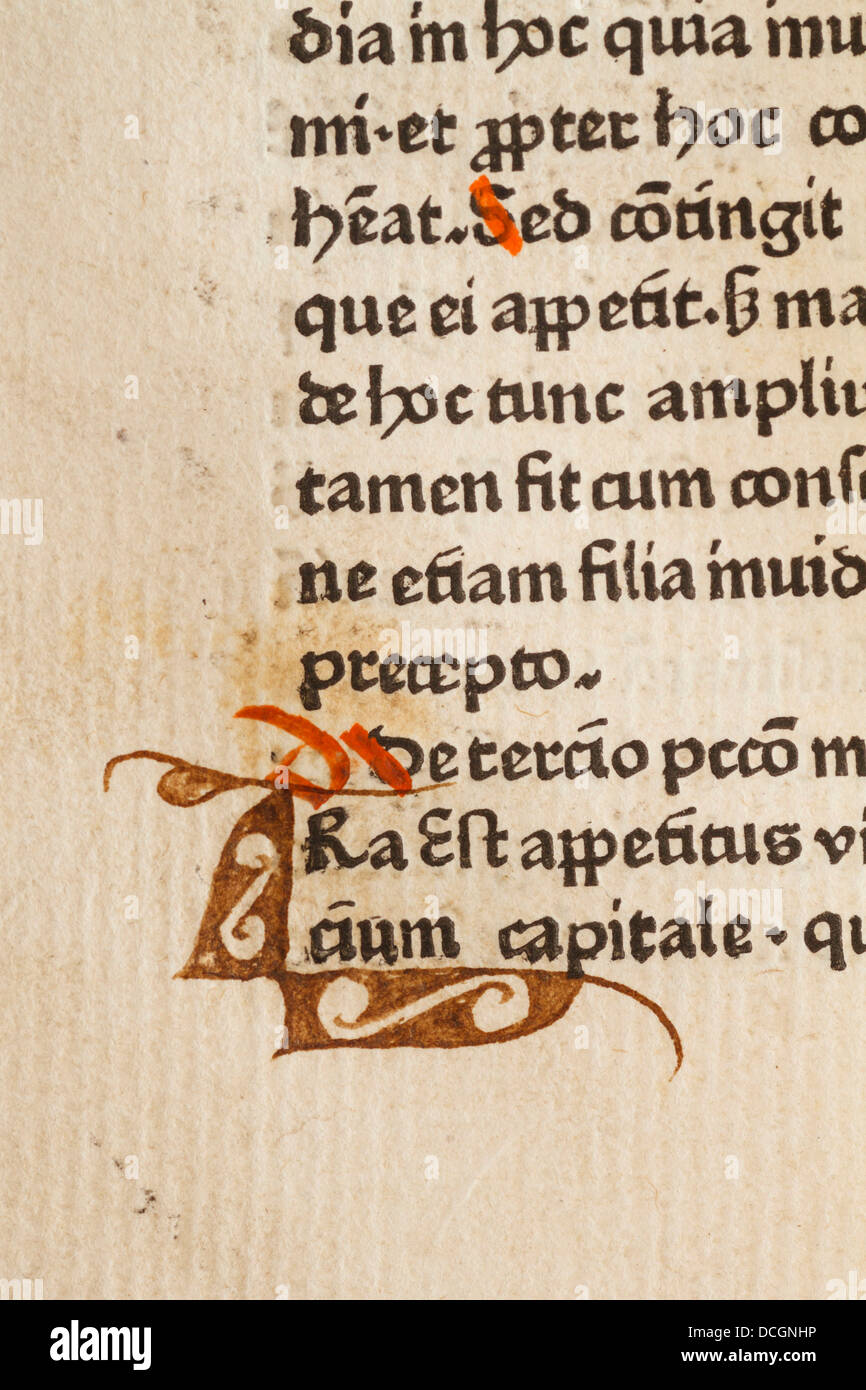 dia in hoc quia inu
mi·et ꝓpter hoc co
hēat. Sed cōtingit
que ei appetit. ma
de hoc tunc ampliu
tamen fit cum conſc
ne etiam filia inuid
precepto.
De tercio pccō m
Ra Eſt appetitus vi
cium capitale · qu
alamy
Image ID: DCGNHP
www.alamy.com